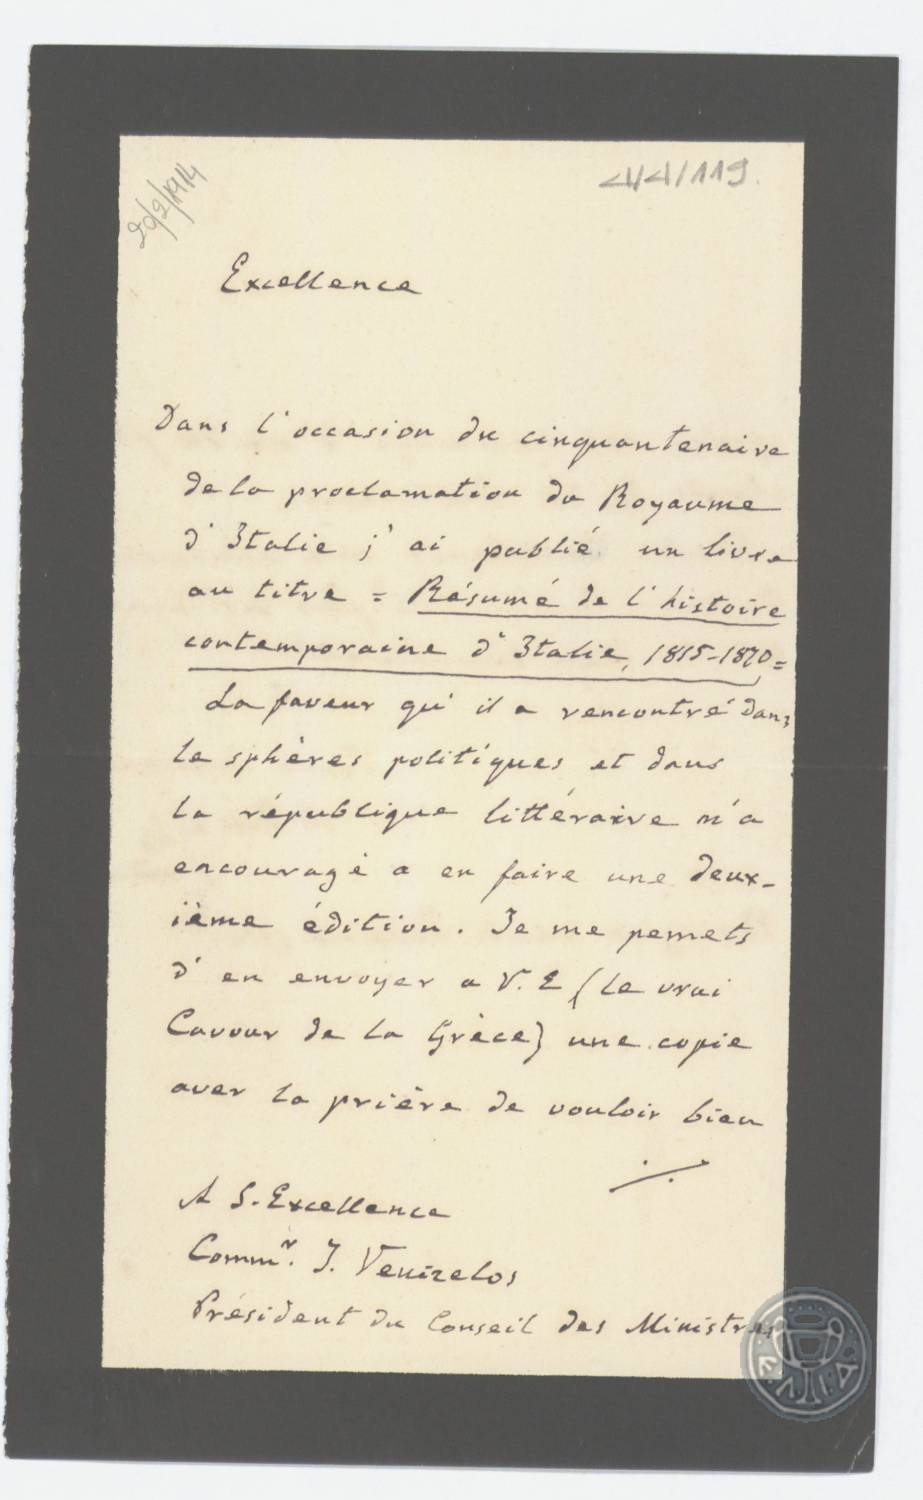 20/2/1914
44/119.
Excellence
Dans l'occasion du cinquantenaire
de la proclamation du Royaume
d'Italie j'ai publié un livre
au titre = Résumé de l'histoire
contemporaine d'Italie, 1815-1870 =
La faveur qu'il a rencontré dans
le sphères politiques et dans
la république littéraire m'a
encouragé a en faire une deux-
ième édition. Je me pemets
d'en envoyer a V. E (le vrai
Cavour de la Grèce) une copie
avec la prière de vouloir bien
A S. Excellence
Comm.r J. Venizelos
Président du Conseil des Ministres
Ε.Λ.Ι.Α